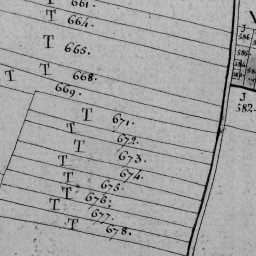 T 661.
T 664.
T 665.
T 668.
T 669.
T 671.
T 672.
T 673.
T 674.
T 675.
T 676.
T 677.
T 678.
J
586
J
582.